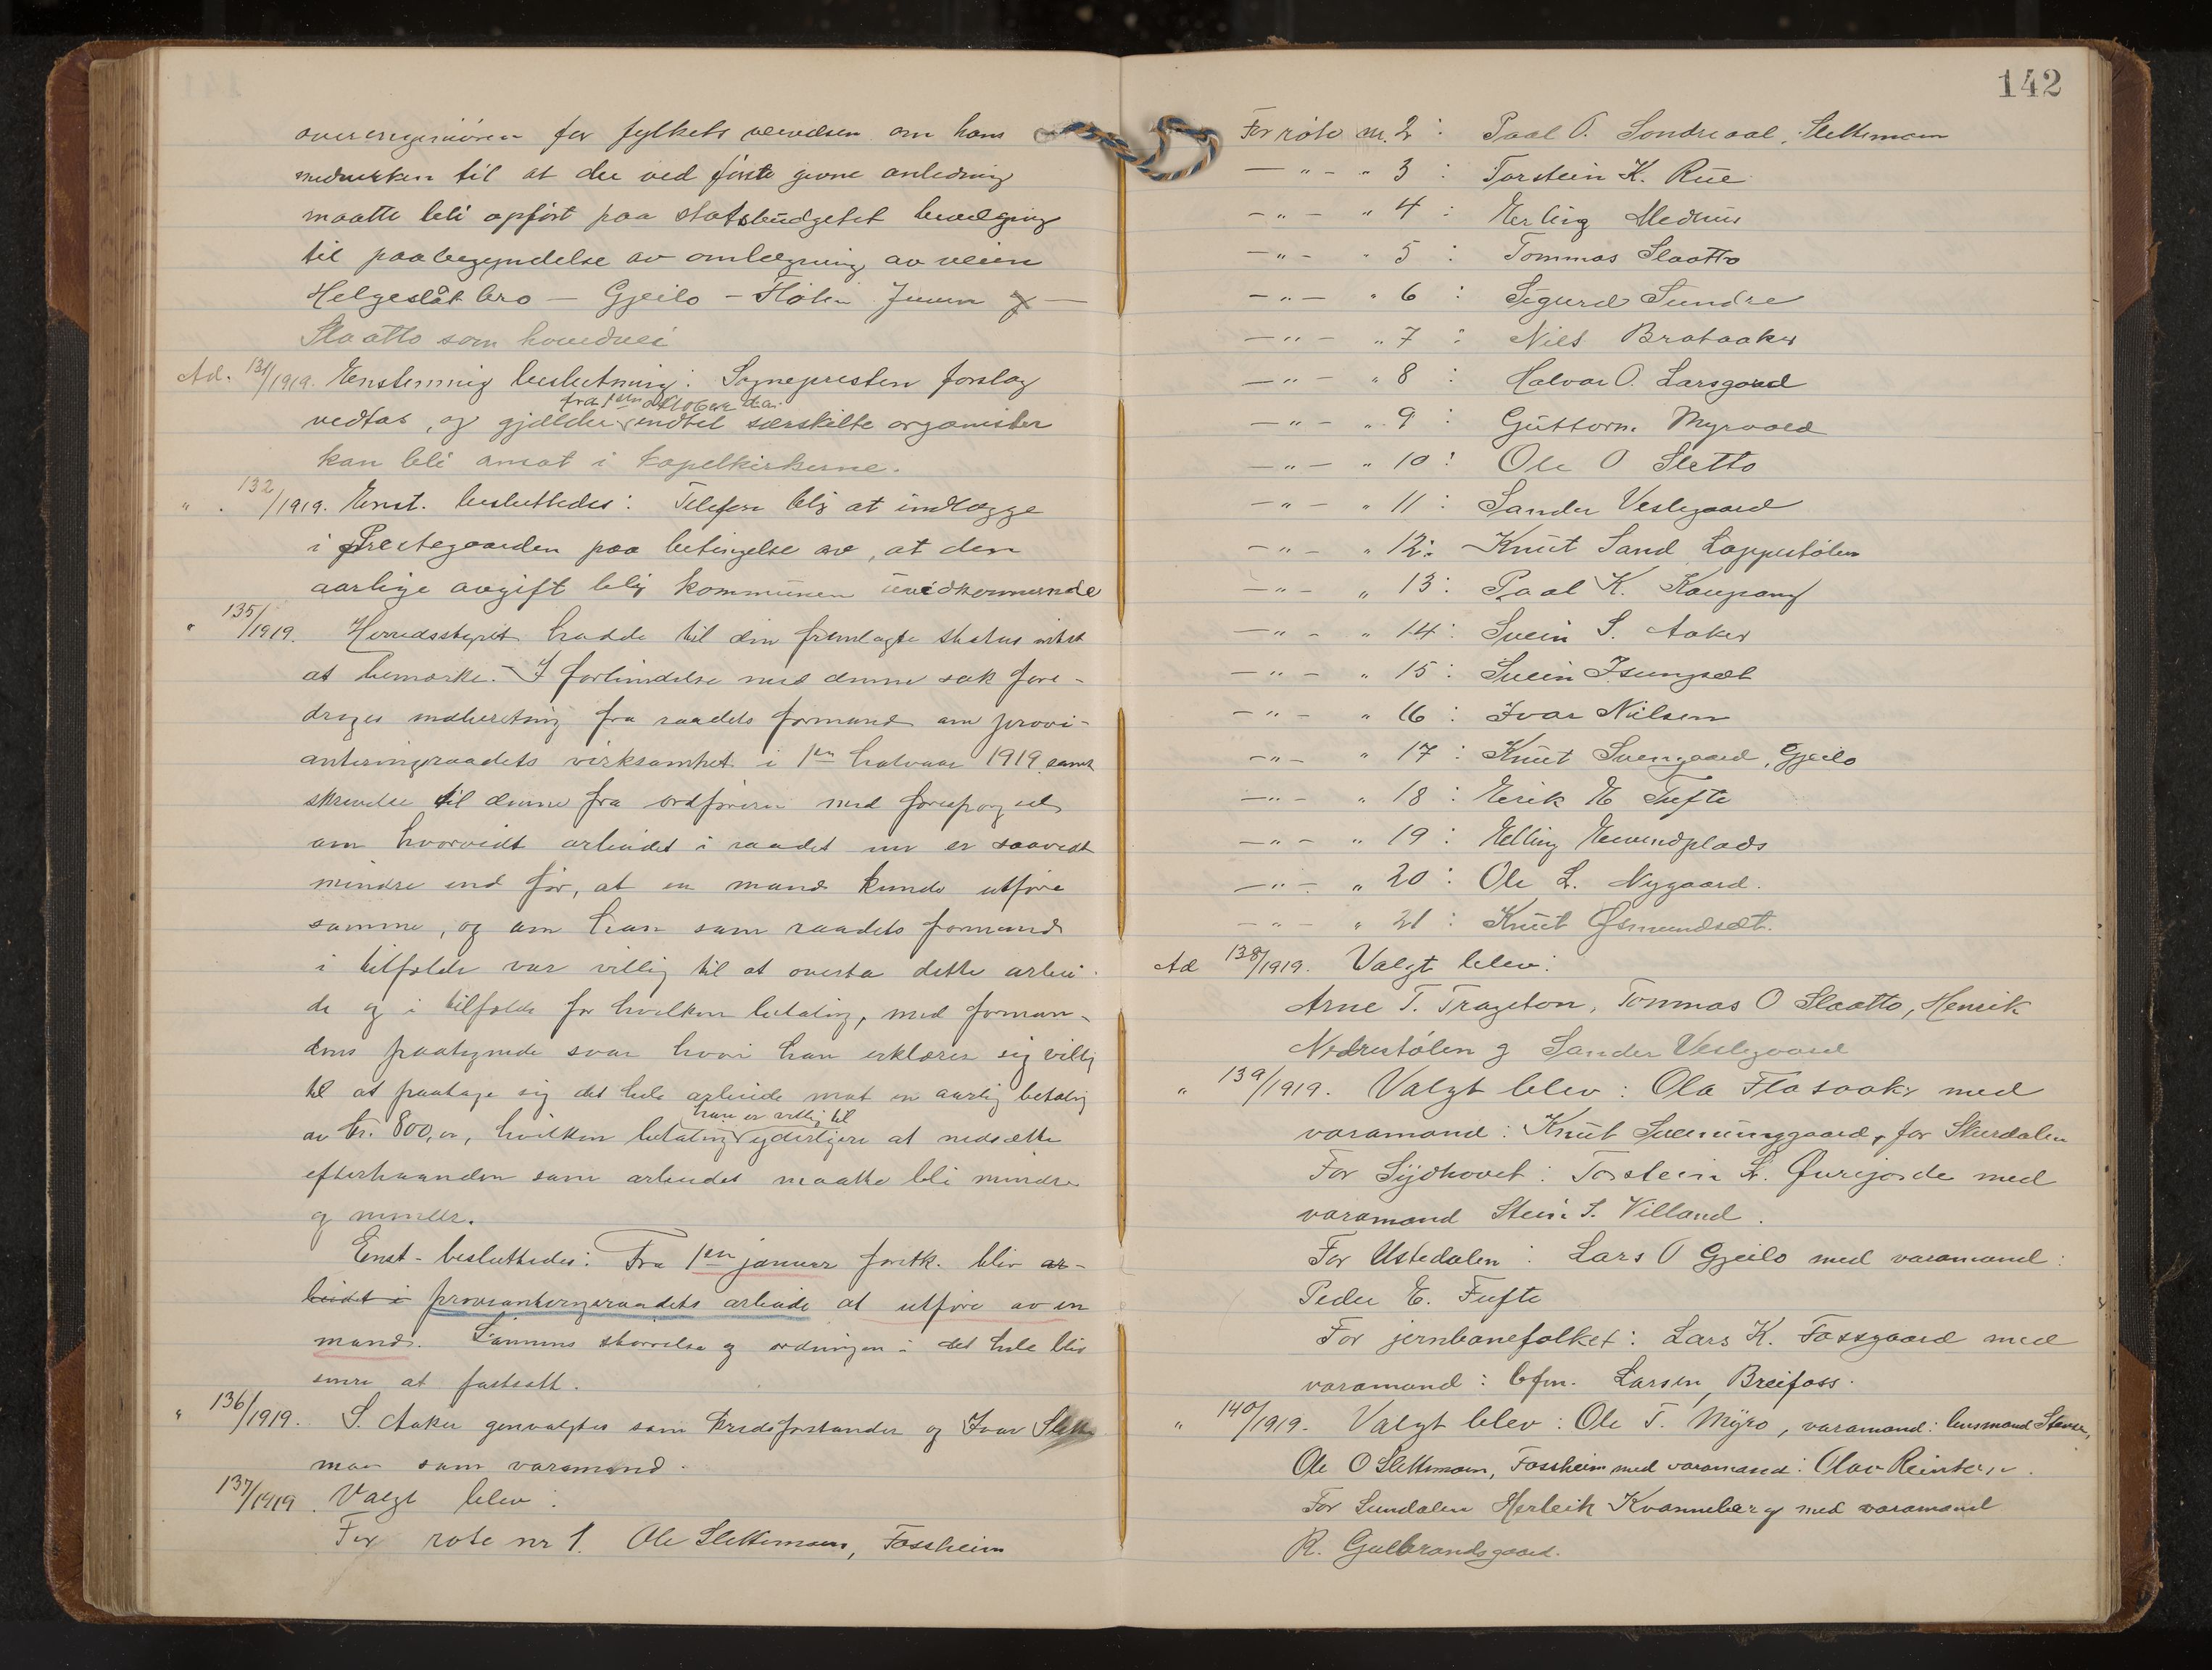 overingeniøren for fylkets veivæsen om hans
medvirken til at der ved første givne anledning
maatte bli opført paa statsbudgettet bevilgning
til paabegyndelse av omlægning av veien
Helgeslåt bro — Gjeilo — Hølen —
Slaatto som hovedvei
Ad. 131/1919. Enstemmig beslutning: Sogneprestens forslag
fra 1ste oktober d.a.
vedtas, og gjælder indtil særskilte organister
kan bli ansat i kapelkirkerne.
" . 132/1919. Enst. besluttedes: Telefon blir at indlægge
i Prestegaarden paa betingelse av, at den
aarlige avgift blir kommunen uvedkommende
" 135/1919. Herredsstyret hadde til den fremlagte status intet
at bemerke. - I forbindelse med denne sak fore-
drages indberetning fra raadets formand om provi-
anteringsraadets virksomhet i 1ste halvaar 1919 samt
skrivelse til denne fra ordføreren med forespørgsel
om hvorvidt arbeidet i raadet nu er saavidt
mindre end før, at en mand kunde utføre
samme, og om han som raadets formand
i tilfælde var villig til at overta dette arbei-
de og i tilfælde for hvilken betaling, med forman-
dens paategnede svar hvori han erklærer sig villig
til at paatage sig det hele arbeide mot en aarlig betaling
han er villig til
av kr. 800,00, hvilken betaling yderligere at nedsætte
efterhaanden som arbeidet maatte bli mindre
og mindre.
Enst. besluttedes: Fra 1ste januar førstk. blir ar-
beidet i provianteringsraadets arbeide at utføre av en
mand. Lønnens størrelse og ordningen i det hele blir
senere at fastsætte.
" 136/1919. S. Aaker gjenvalgtes som kredsforstander og Ivar Slette-
moen som varamand.
137/1919. Valgt blev:
For rote nr 1. Ole Slettemoen, Fossheim
142
For rote nr. 2 : Paal O. Sondreaal, Slettemoen
— " — " 3 : Torstein K. Rue
— " — " 4 : Erling Medhus
— " — " 5 : Tommas Slaatto
— " — " 6 : Sigurd Sundre
— " — " 7 : Niels Brataaker
— " — " 8 : Halvor O. Larsgaard
— " — " 9 : Guttorm Myrvold
— " — " 10 : Ole O Sletto
— " — " 11 : Sander Veslegaard
— " — " 12 : Knut Sand Loppestølen
— " — " 13 : Paal K. Kaupang
— " — " 14 : Svein S. Aaker
— " — " 15 : Svein Isungset
— " — " 16 : Ivar Nilsen
— " — " 17 : Knut Svengaard, Gjeilo
— " — " 18 : Eirik E Tufte
— " — " 19 : Elling Eivindplads
— " — " 20 : Ole L. Nygaard.
— " — " 21 : Knut Øsmundset.
Ad 138/1919. Valgt blev:
Arne T. Trageton, Tommas O Slaatto, Henrik
Nedrestølen og Sander Veslegaard
" 139/1919. Valgt blev : Ola Flasaaker med
varamand : Knut Svenunggaard, for Skurdalen
For Sydhovet : Torstein L. Øvrejorde med
varamand Stein S. Villand.
For Ustedalen : Lars O Gjeilo med varamand :
Peder E. Tufte
For jernbanefolket : Lars K. Fossgaard med
varamand : bfm. Larsen, Breifoss.
" 140/1919. Valgt blev : Ole T. Myro, varamand : lensmand Stensen,
Ole O Slettemoen, Fossheim med varamand : Olav Reinton.
For Sundalen Herleik Kvanneberg med varamand
R. Gulbrandsgaard.